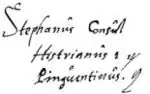 Stephanus Consul
Histrianus &
Pinguentinus.